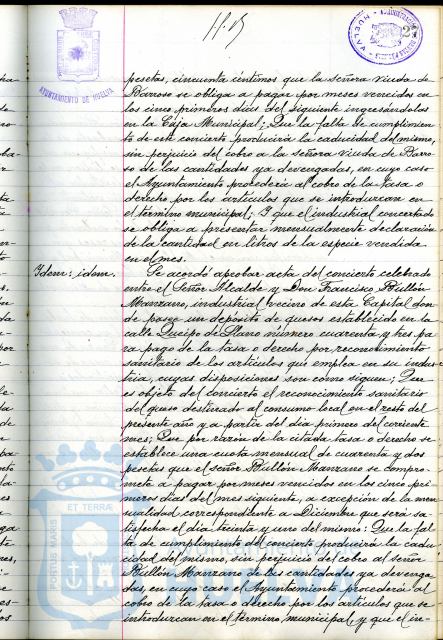 pesetas, cincuenta céntimos que la señora viuda de
Barroso se obliga a pagar por meses vencidos en
los cinco primeros días del siguiente ingresándolos
en la Caja Municipal; Que la falta de cumplimien
to de este concierto producirá la caducidad del mismo,
sin perjuicio del cobro a la señora viuda de Barro
so de las cantidades ya devengadas, en cuyo caso
el Ayuntamiento procederá al cobro de la tasa o
derecho por los artículos que se introduzcan en
el término municipal; Y que el industrial concertado
se obliga a presentar mensualmente declaración
de la cantidad en litros de la especie vendida
en el mes.
Idem: idem.
Se acordó aprobar acta del concierto celebrado
entre el Señor Alcalde y Don Francisco Bullón
Manzano, industrial vecino de esta Capital don
de posee un depósito de quesos establecido en la
calle Queipo de Llano número cuarenta y tres pa
ra pago de la tasa o derecho por reconocimiento
sanitario de los artículos que emplea en su indus
tria, cuyas disposiciones son como sigue; Que
es objeto del concierto el reconocimiento sanitario
del queso destinado al consumo local en el resto del
presente año y a partir del día primero del corriente
mes; Que por razón de la citada tasa o derecho se
establece una cuota mensual de cuarenta y dos
pesetas que el señor Bullón Manzano se compro-
mete a pagar por meses vencidos en los cinco pri-
meros días del mes siguiente, a excepción de la men
sualidad correspondiente a Diciembre que será sa-
tisfecha el día treinta y uno del mismo: Que la fal
ta de cumplimiento del concierto producirá la cadu
cidad del mismo, sin perjuicio del cobro al señor
Bullón Manzano de las cantidades ya devenga
das en cuyo caso el Ayuntamiento procederá al
cobro de la tasa o derecho por los artículos que se
introduzcan en el término municipal, y que el in-
AYUNTAMIENTO DE HUELVA
HUELVA
PORTUS MARIS ET TERRAE
Ayuntamiento de